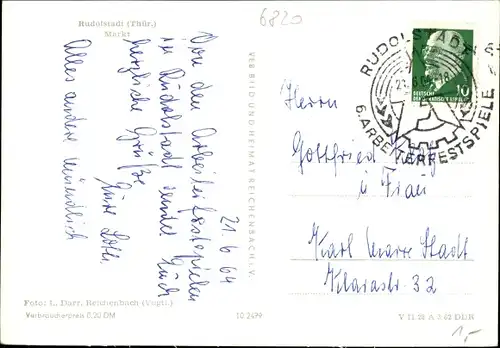 6820
Rudolstadt (Thür.)
Markt
21. 6. 64
Von den Arbeiterfestspielen
in Rudolstadt sendet Euch
herzliche Grüße
Eure Lotte.
Alles andere mündlich
VEB BILD UND HEIMAT REICHENBACH i. V.
RUDOLSTADT
6. ARBEITERFESTSPIELE
10
Herrn
Gottfried
u Frau
Karl Marx Stadt
Klarastr. 32
Foto: L. Darr, Reichenbach (Vogtl.)
Verbraucherpreis 0,20 DM
10 2499
DDR
1,-